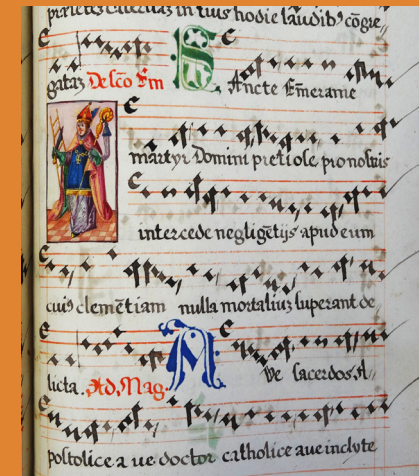 prietes catervas in tuis hodie laudib9 cōgre„
gatas De sco Em Sancte Em̄erame
martyr Domini pretiose pro nostris
intercede negligētijs apud eum
cui9 clemētiam nulla mortaliuz superant de„
licta. Ad. Mag. Ave sacerdos. A„
postolice a ve doctor catholice ave inclyte